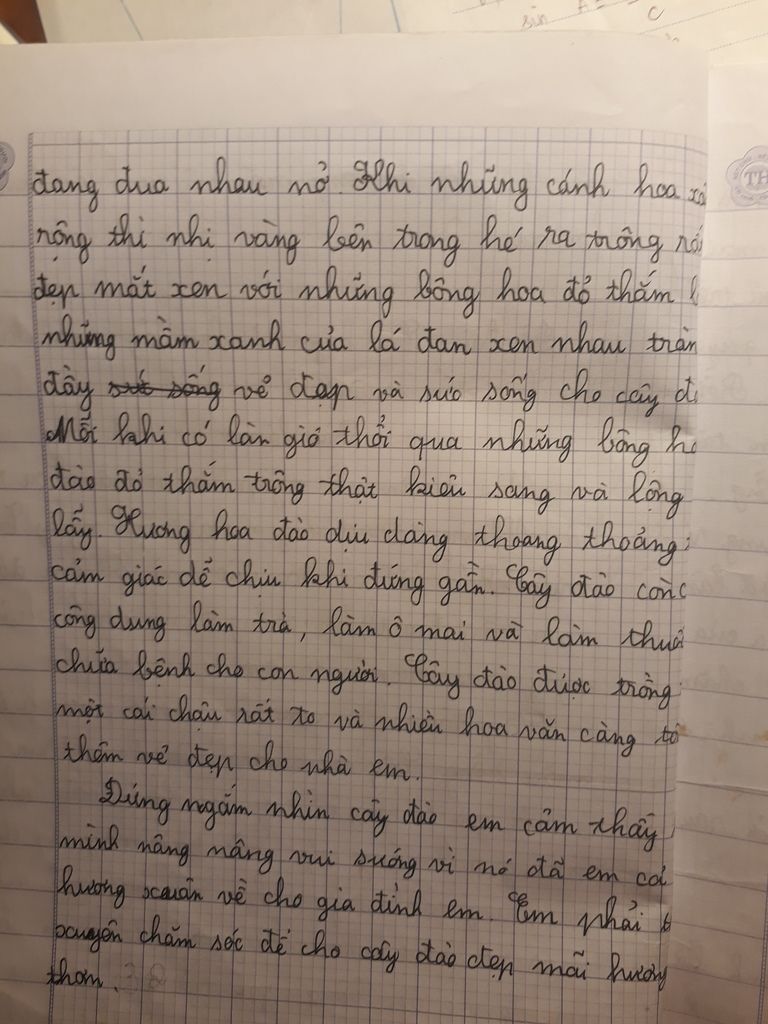 sin
C
TH
đang đua nhau nở. Khi những cánh hoa
rộng thì nhị vàng bên trong hé ra trông
đẹp mắt xen với những bông hoa đỏ thắm
những mầm xanh của lá đan xen nhau tràn
đầy sức sống vẻ đẹp và sức sống cho cây
Mỗi khi có làn gió thổi qua những bông
đào đỏ thắm trông thật kiêu sang và lộng
lẫy. Hương hoa đào dịu dàng thoang thoảng
cảm giác dễ chịu khi đứng gần. Cây đào còn
công dung làm trà, làm ô mai và làm
chữa bệnh cho con người. Cây đào được trồng
một cái chậu rất to và nhiều hoa văn càng tô
thêm vẻ đẹp cho nhà em.
Đứng ngắm nhìn cây đào em cảm thấy
mình nâng nâng vui sướng vì nó đã em cả
hương xuân về cho gia đình em. Em phải
xuyên chăm sóc để cho cây đào đẹp mãi hương
thơm.